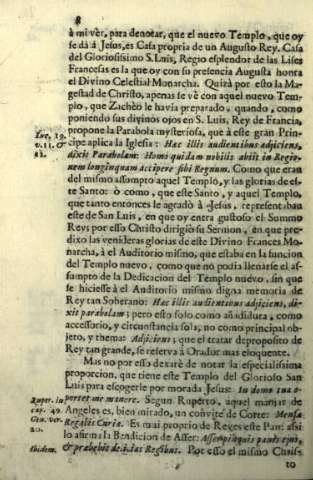 8
à mi ver, para denotar, que el nuevo Templo, que oy
se dà à Jesus, es Casa propria de un Augusto Rey. Casa
del Gloriosissimo S. Luis, Regio esplendor de las Lises
Francesas es la que oy con su presencia Augusta honra
el Divino Celestial Monarcha. Quirà por esto la Ma-
gestad de Christo, apenas se vè con aquel nuevo Tem-
plo, que Zachèo le havia preparado, quando, como
poniendo sus divinos ojos en S. Luis, Rey de Francia,
propone la Parabola mysteriosa, que à este gran Prin-
cipe aplica la Iglesia: Hæc illis audientibus adjiciens,
dixit Parabolam: Homo quidam nobilis abiit in Regio-
nem longinquam accipere sibi Regnum. Como que eran
del mismo assumpto aquel Templo, y las glorias de es-
te Santo: ò como, que este Santo, y aquel Templo,
que tanto entonces le agradò à Jesus, representaban
este de San Luis, en que oy entra gustoso el Summo
Rey; por esso Christo dirigiò su Sermon, en que pre-
dixo las venideras glorias de este Divino Frances Mo-
narcha, à el Auditorio mismo, que estaba en la funcion
del Templo nuevo, como que no podia llenarse el as-
sumpto de la Dedicacion del Templo nuevo, sin que
se hiciesse à el Auditorio mismo digna memoria de
Rey tan Soberano: Hæc illis audientibus adjiciens, di-
xit parabolam; pero esto solo como añadidura, como
accessorio, y circunstancia sola, no como principal ob-
jeto, y thema: Adjiciens; que el tratar de proposito de
Rey tan grande, se reserva à Orador mas eloquente.
Mas no por esso dexarè de notar la especialissima
proporcion, que tiene este Templo del Glorioso San
Luis para escogerle por morada Jesus: In domo tua o-
portet me manere. Segun Ruperto, aquel manjar de
Angeles es, bien mirado, un convite de Corte: Mensa
Regalis Curia. Es mui proprio de Reyes este Pan: assi
lo afirma la Bendicion de Asser: Asser pinguis panis ejus,
& præbebit delicias Regibus. Por esso el mismo Chris-
to
Luc. 19.
v. 11. &
12.
Ruper. in
cap. 49.
Gen. ver.
20.
Ibidem.